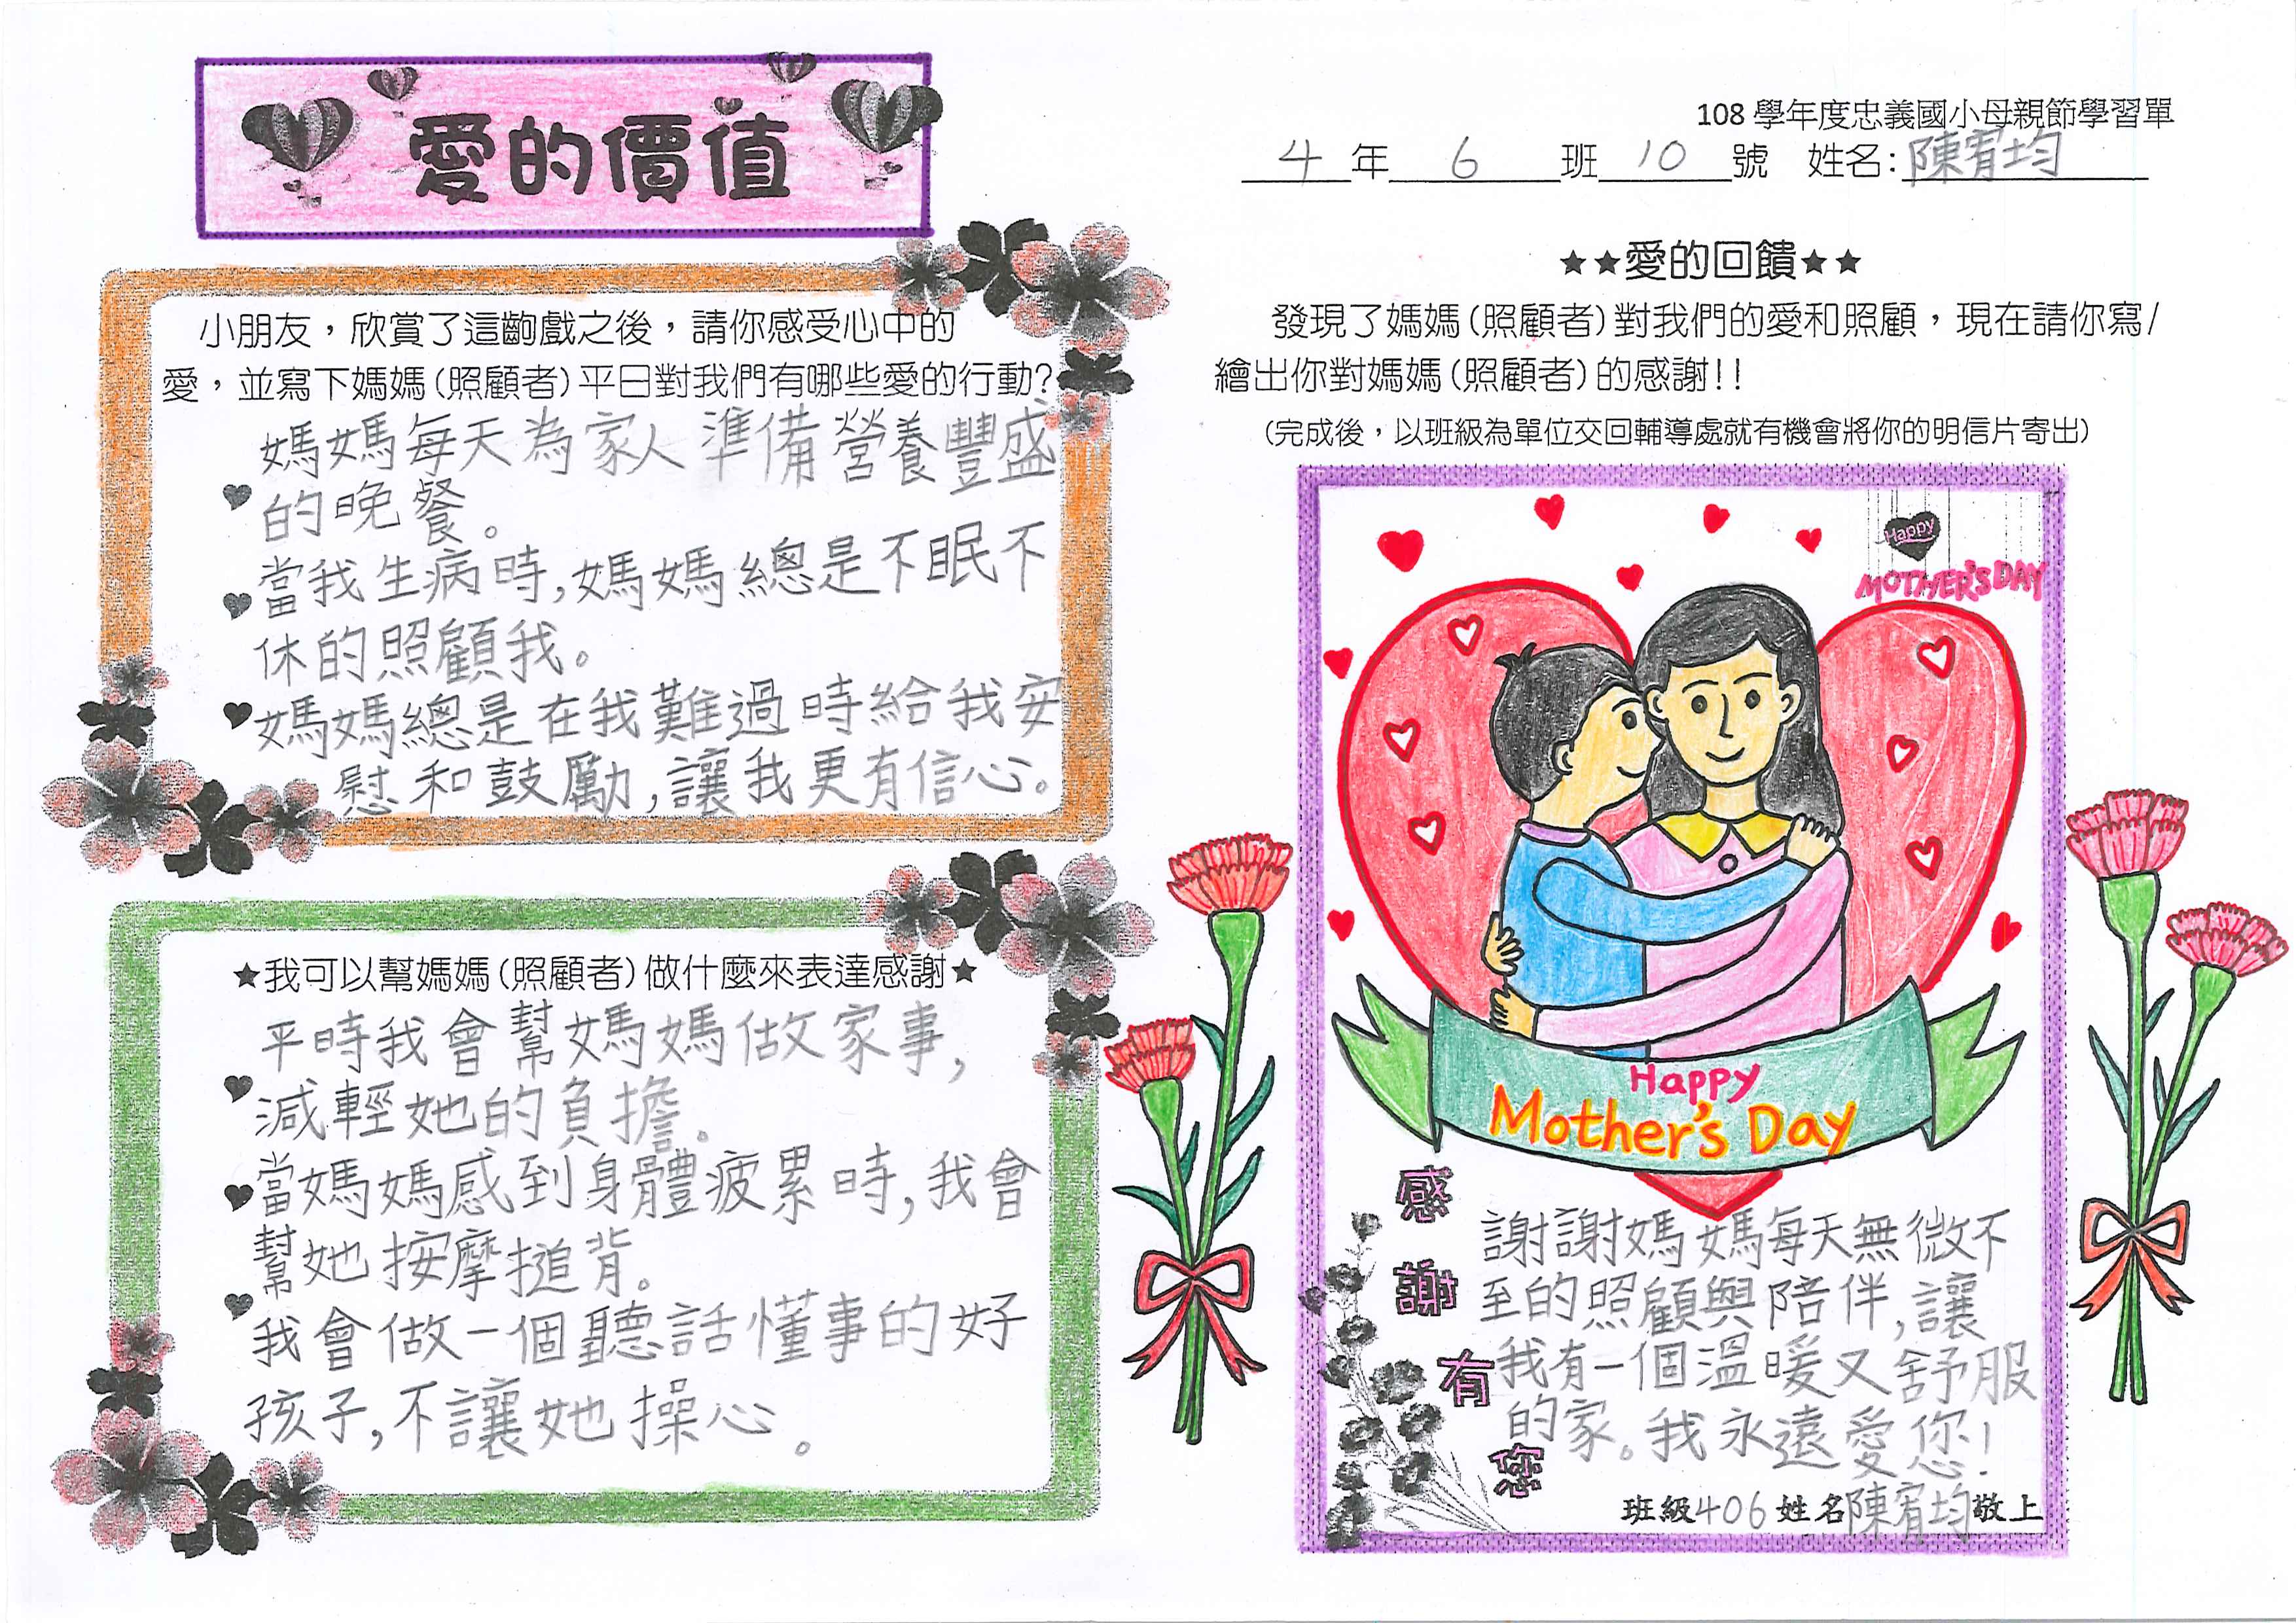 愛的價值
小朋友，欣賞了這齣戲之後，請你感受心中的
愛，並寫下媽媽(照顧者)平日對我們有哪些愛的行動?
媽媽每天為家人準備營養豐盛
的晚餐。
當我生病時,媽媽總是不眠不
休的照顧我。
媽媽總是在我難過時給我安
慰和鼓勵,讓我更有信心。
★我可以幫媽媽(照顧者)做什麼來表達感謝★
平時我會幫媽媽做家事,
減輕她的負擔。
當媽媽感到身體疲累時,我會
幫她按摩搥背。
我會做一個聽話懂事的好
孩子,不讓她操心。
108 學年度忠義國小母親節學習單
4年6班10號 姓名:陳宥均
★★愛的回饋★★
發現了媽媽(照顧者)對我們的愛和照顧，現在請你寫/
繪出你對媽媽(照顧者)的感謝!!
(完成後，以班級為單位交回輔導處就有機會將你的明信片寄出)
Happy
MOTHER'S DAY
Happy
Mother's Day
感謝有您
謝謝媽媽每天無微不
至的照顧與陪伴,讓
我有一個溫暖又舒服
的家。我永遠愛您!
班級406姓名陳宥均敬上